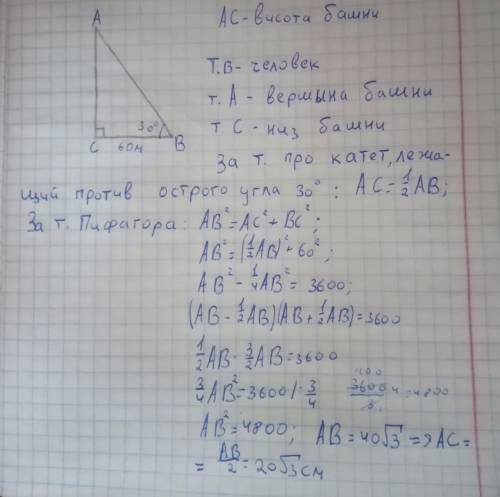 A
AC-висота башни
Т.В- человек
т. А - вершына башни
т. С - низ башни
30°
C 60м B
За т. про катет, лежа-
щий против острого угла 30°: AC=½AB;
За т. Пифагора: AB²=AC²+BC²;
AB²=(½AB)²+60²;
AB²-¼AB²=3600;
(AB-½AB)(AB+½AB)=3600
½AB·3/2AB=3600
¾AB²=3600/·¾
AB²=4800; AB=40√3=>AC=
=AB/2=20√3см